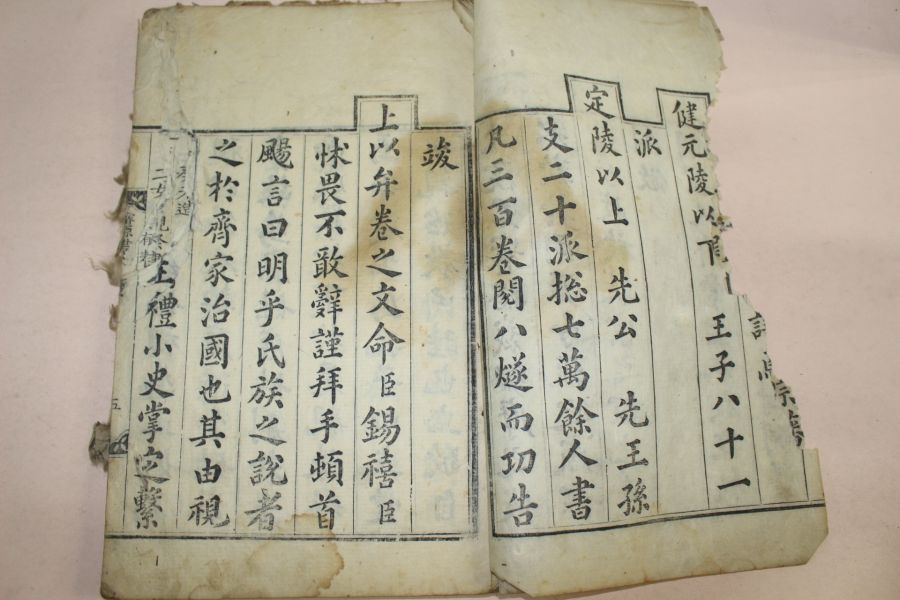 宗
健元陵以 王子八十一
派
定陵以上 先公 先王孫
支二十派摠七萬餘人書
凡三百卷閱八燧而功告
竣
上以弁卷之文命臣錫禧臣
怵畏不敢辭謹拜手頓首
颺言曰明乎氏族之說者
之於齊家治國也其由視
禮小史掌定繫
五